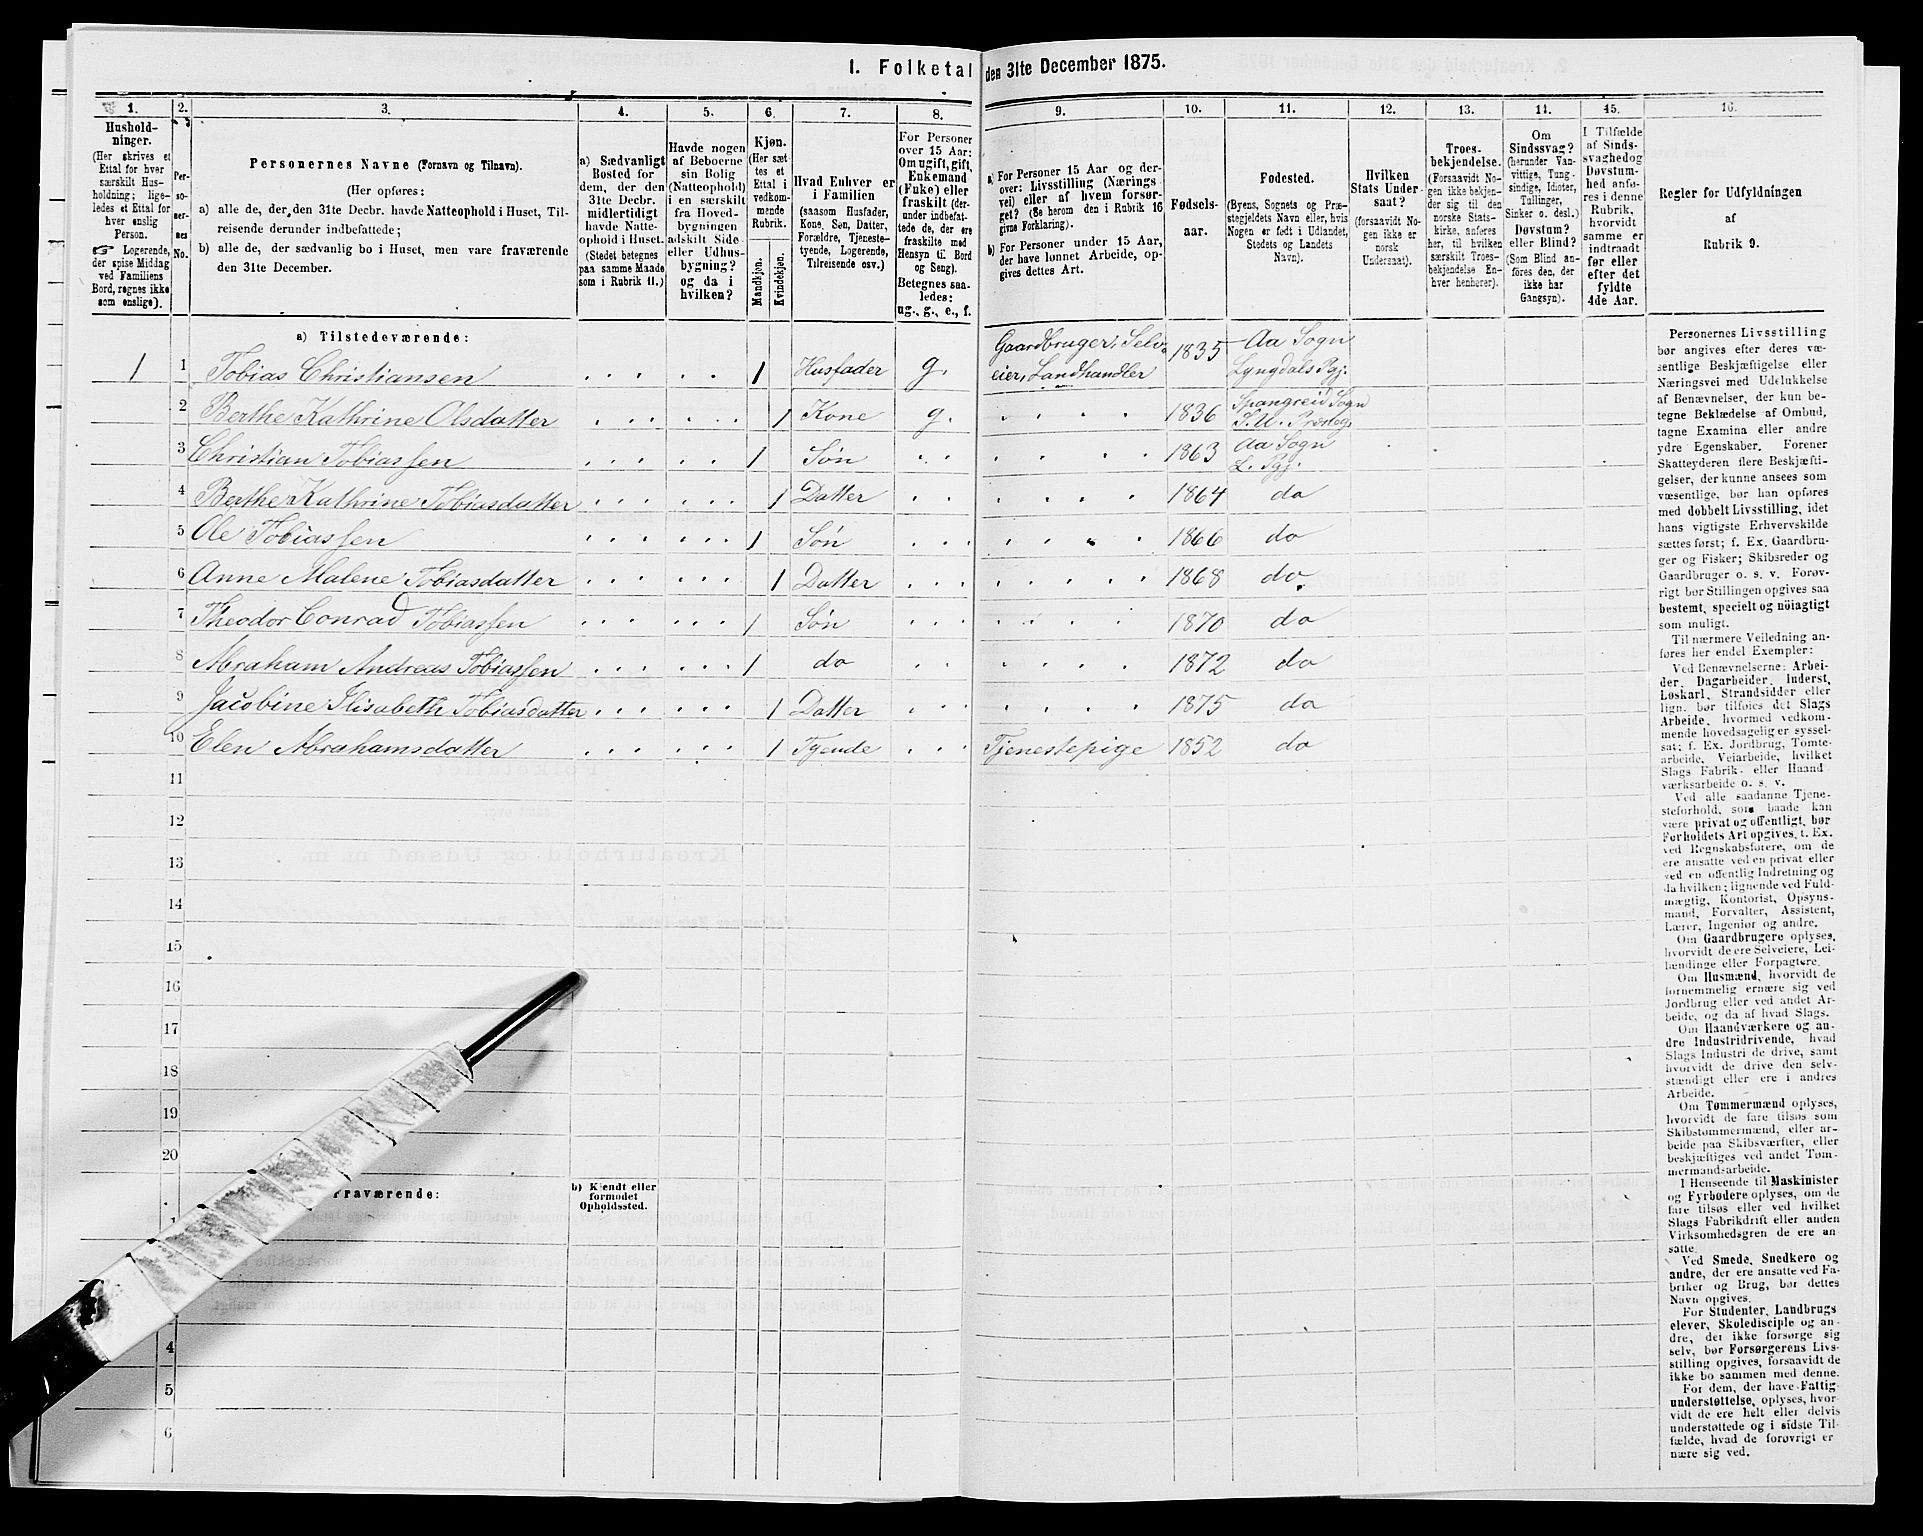 I. Folketal den 31te December 1875.
1. 2. 3. 4. 5. 6. 7. 8. 9. 10. 11. 12. 13. 14. 45. 16.
Hushold-
ninger.
(Her skrives et
Ettal for hver
særskilt Hus-
holdning; lige-
ledes et Ettal for
hver enslig
Person.
☞ Logerende,
der spise Middag
ved Familiens
Bord, regnes ikke
som enslige).
Per-
so-
ner-
nes
No.
Personernes Navne (Fornavn og Tilnavn).
(Her opføres:
a) alle de, der den 31te Decbr. havde Natteophold i Huset, Til-
reisende derunder indbefattede;
b) alle de, der sædvanlig bo i Huset, men vare fraværende
den 31te December.
a) Sædvanligt
Bosted for
dem, der den
31te Decbr.
midlertidigt
havde Natte-
ophold i Huset.
(Stedet betegnes
paa samme Maade
som i Rubrik 11.)
Havde nogen
af Beboerne
sin Bolig
(Natteophold)
i en særskilt
fra Hoved-
bygningen
adskilt Side-
eller Udhus-
bygning?
og da i
hvilken?
Kjøn.
(Her sæt-
tes et
Ettal i
vedkom-
mende
Rubrik.
Mandkjøn.
Kvindekjøn.
Hvad Enhver er
i Familien
(saasom Husfader,
Kone, Søn, Datter,
Forældre, Tjeneste-
tyende, Logerende,
Tilreisende osv.)
For Personer
over 15 Aar:
Om ugift, gift,
Enkemand
(Enke) eller
fraskilt (der-
under indbefat-
tede de, der ere
fraskilte med
Hensyn til Bord
og Seng).
Betegnes saa-
ledes:
ug., g., e., f.
a) For Personer 15 Aar og der-
over: Livsstilling (Nærings-
vei) eller af hvem forsør-
get? (Se herom den i Rubrik 16
givne Forklaring).
b) For Personer under 15 Aar,
der have lønnet Arbeide, op-
gives dettes Art.
Fødsels-
aar.
Fødested.
(Byens, Sognets og Præ-
stegjeldets Navn eller, hvis
Nogen er født i Udlandet,
Stedets og Landets
Navn).
Hvilken
Stats Under-
saat?
(forsaavidt No-
gen ikke er
norsk
Undersaat).
Troes-
bekjendelse.
(Forsaavidt No-
gen ikke bekjen-
der sig til den
norske Stats-
kirke, anføres
her, til hvilken
særskilt Troes-
bekjendelse En-
hver henhører).
Om
Sindssvag?
(herunder Van-
vittige, Tung-
sindige, Idioter,
Tullinger,
Sinker o. desl.)
Døvstum?
eller Blind?
(Som Blind an-
føres den, der
ikke har
Gangsyn).
I Tilfælde
af Sinds-
svaghed og
Døvstum-
hed anfø-
res i denne
Rubrik,
hvorvidt
samme er
indtraadt
før eller
efter det
fyldte
4de Aar.
Regler for Udfyldningen
af
Rubrik 9.
a) Tilstedeværende:
1 1 Tobias Christiansen 1 Husfader g. Gaardbruger, Selv-
eier, Landhandler 1835 Aa Sogn
Lyngdals Pgj.
2 Berthe Kathrine Olsdatter 1 Kone g. 1836 Spangreid Sogn
S. U. Præsteg
3 Christian Tobiassen 1 Søn 1863 Aa Sogn
L. Pgj.
4 Berthe Kathrine Tobiasdatter 1 Datter 1864 do
5 Ole Tobiassen 1 Søn 1866 do
6 Anne Malene Tobiasdatter 1 Datter 1868 do
7 Theodor Conrad Tobiassen 1 Søn 1870 do
8 Abraham Andreas Tobiassen 1 do 1872 do
9 Jacobine Elisabeth Tobiasdatter 1 Datter 1875 do
10 Elen Abrahamsdatter 1 Tyende Tjenestepige 1852 do
11
12
13
14
15
16
17
18
19
20
raværende:
b) Kjendt eller
formodet
Opholdssted.
1
4
5
6
Personernes Livsstilling
bør angives efter deres væ-
sentlige Beskjæftigelse eller
Næringsvei med Udelukkelse
af Benævnelser, der kun be-
tegne Beklædelse af Ombud,
tagne Examina eller andre
ydre Egenskaber. Forener
Skatteyderen flere Beskjæfti-
gelser, der kunne ansees som
væsentlige, bør han opføres
med dobbelt Livsstilling, idet
hans vigtigste Erhvervskilde
sættes først; f. Ex. Gaardbru-
ger og Fisker; Skibsreder og
Gaardbruger o. s. v. Forøv-
rigt bør Stillingen opgives saa
bestemt, specielt og nöiagtigt
som muligt.
Til nærmere Veiledning an-
føres her endel Exempler:
Ved Benævnelserne: Arbei-
der, Dagarbeider, Inderst,
Løskarl, Strandsidder eller
lign. bør tilføies det Slags
Arbeide, hvormed vedkom-
mende hovedsagelig er syssel-
sat; f. Ex. Jordbrug, Tømte-
arbeide, Veiarbeide, hvilket
Slags Fabrik- eller Haand
værksarbeide o. s. v.
Ved alle saadanne Tjene-
steforhold, som baade kan
være privat og offentligt, bør
Forholdets Art opgives, t. Ex.
ved Regnskabsførere, om de
ere ansatte ved en privat eller
ved en offentlig Indretning og
da hvilken; lignende ved Fuld-
mægtig, Kontorist, Opsyns-
mand, Forvalter, Assistent,
Lærer, Ingeniør og andre.
Om Gaardbrugere oplyses,
hvorvidt de ere Selveiere, Lei-
lændinge eller Forpagtere.
Om Husmænd, hvorvidt de
fornemmelig ernære sig ved
Jordbrug eller ved andet Ar-
beide, og da af hvad Slags.
Om Haandværkere og an-
dre Industridrivende, hvad
Slags Industri de drive, samt
hvorvidt de drive den selv-
stændigt eller ere i andres
Arbeide.
Om Tømmermænd oplyses,
hvorvidt de fare tilsøs som
Skibstømmermænd, eller ar-
beide paa Skibsværfter, eller
beskjæftiges ved andet Tøm-
mermandsarbeide.
I Henseende til Maskinister
og Fyrbødere oplyses, om de
fare tilsøs eller ved hvilket
Slags Fabrikdrift eller anden
Virksomhedsgren de ere an-
satte.
Ved Smede, Snedkere og
andre, der ere ansatte ved Fa-
briker og Brug, bør dettes
Navn opgives.
For Studenter, Landbrugs
elever, Skoledisciple og an-
dre, der ikke forsørge sig
selv, bør Forsørgerens Livs-
stilling opgives, forsaavidt de
ikke bo sammen med denne.
For dem, der have Fattig-
understøttelse, oplyses, hvor-
vidt de ere helt eller delvis
understøttede og i sidste Til-
fælde, hvad de forøvrigt er
nære sig ved.